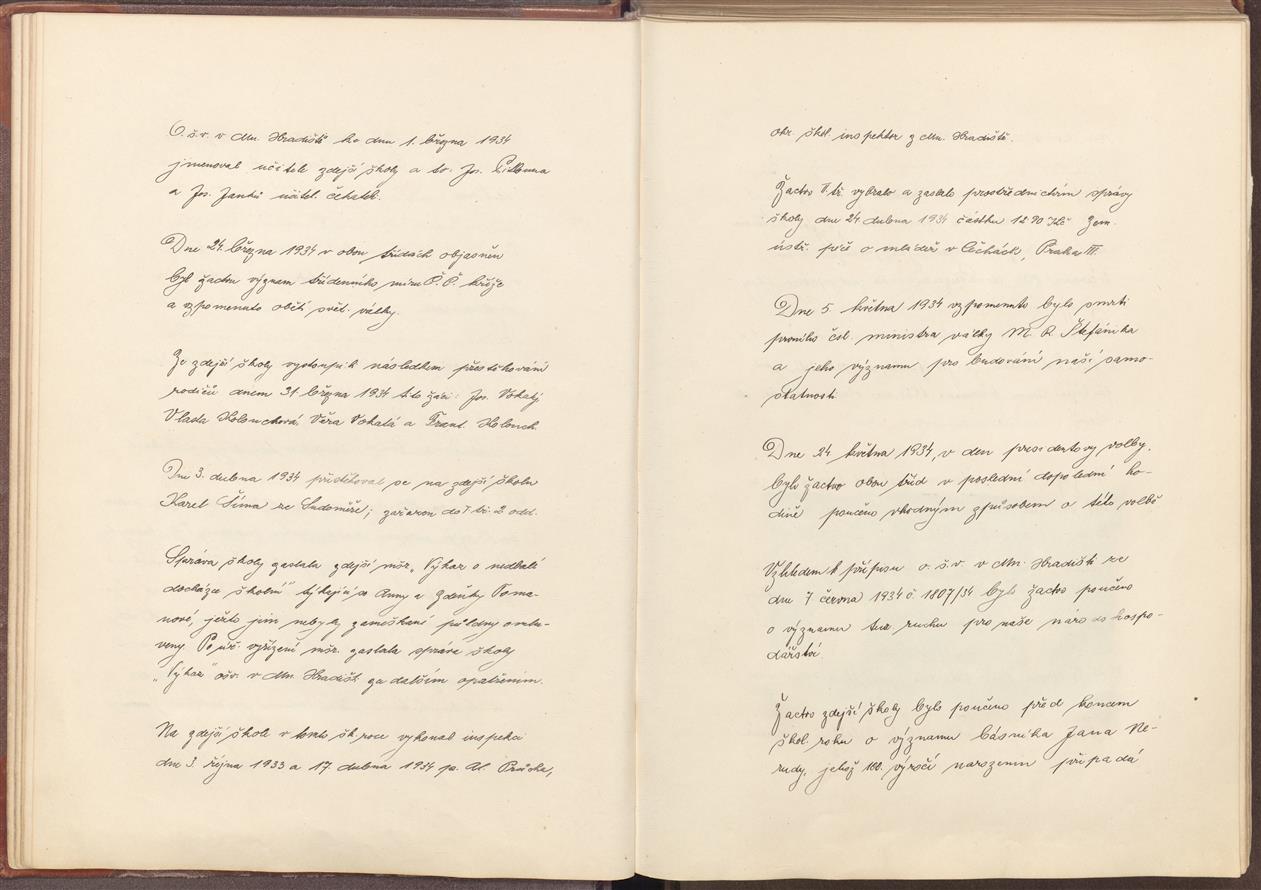 O. š. v. v Mn. Hradišti ke dnu 1. března 1934
jmenoval učitele zdejší školy a to: Jos.
a Jos. Janků učitel. čekatel.
Dne 24. března 1934 v obou třídách objasněn
byl žactvu význam třídenního míru Č. Č. kříže
a vzpomenuto obětí svět. války.
Ze zdejší školy vystoupili následkem přestěhování
rodičů dnem 31. března 1934 tito žáci: Jos. Vokatý
Vlasta Holonchová, Věra Vokatá a Frant. Holonch.
Dne 3. dubna 1934 přistěhoval se na zdejší školu
Karel Šíma ze Sudoměře; zařazen do I. tř. 2 odd.
Správa školy zaslala zdejší mšr. „Výkaz o nedbalé
docházce školní" týkající se Anny a Zdeňky Toma-
nové, ježto jim nebyly zameškané půldny omlu-
veny. Po úř. vyřízení mšr. zaslala správa školy
„Výkaz" ošv. v Mn. Hradišti za dalším opatřením.
Na zdejší škole v tomto šk. roce vykonal inspekci
dne 3. října 1933 a 17. dubna 1934 p. Al. Průcha,
okr. škol. inspektor z Mn. Hradiště.
Žactvo II. tř. vybralo a zaslalo prostřednictvím správy
školy dne 24. dubna 1934 částku 12·90 Kč Zem.
ústř. péč. o mládež v Čechách, Praha III.
Dne 5. května 1934 vzpomenuto bylo smrti
prvního čsl. ministra války M. R. Štefánika
a jeho významu pro budování naší samo-
statnosti.
Dne 24 května 1934, v den presidentovy volby,
bylo žactvo obou tříd v poslední dopolední ho-
dině poučeno vhodným způsobem o této volbě
Vzhledem k přípisu o. š. v. v Mn. Hradišti ze
dne 7 června 1934 č. 1807/34 bylo žactvo poučeno
o významu tur. ruchu pro naše národohospo-
dářství.
Žactvo zdejší školy bylo poučeno před koncem
škol. roku o významu básníka Jana Ne-
rudy, jehož 100. výročí narozenin připadá